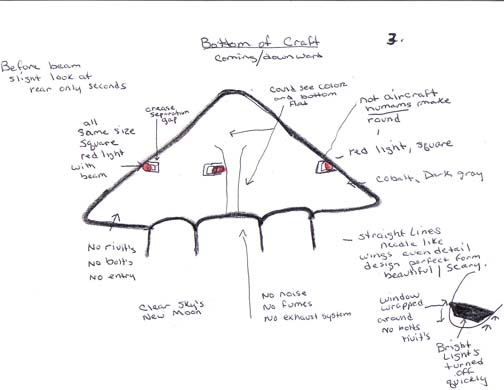 Bottom of Craft
3.
coming/downward
Before beam
slight look at
rear only seconds
could see color
and bottom
flat
crease
separation
gap
not aircraft
humans make
round
all
same size
square
red light
with
beam
red light, square
cobalt, Dark gray
No rivits
No bolts
No entry
straight lines
needle like
wings even detail
design perfect form
beautiful / scary.
Clear Sky's
New Moon
No noise
No fumes
No exhaust system
window
wrapped
around
No bolts
rivit's
Bright
Light's
turned
off
quickly